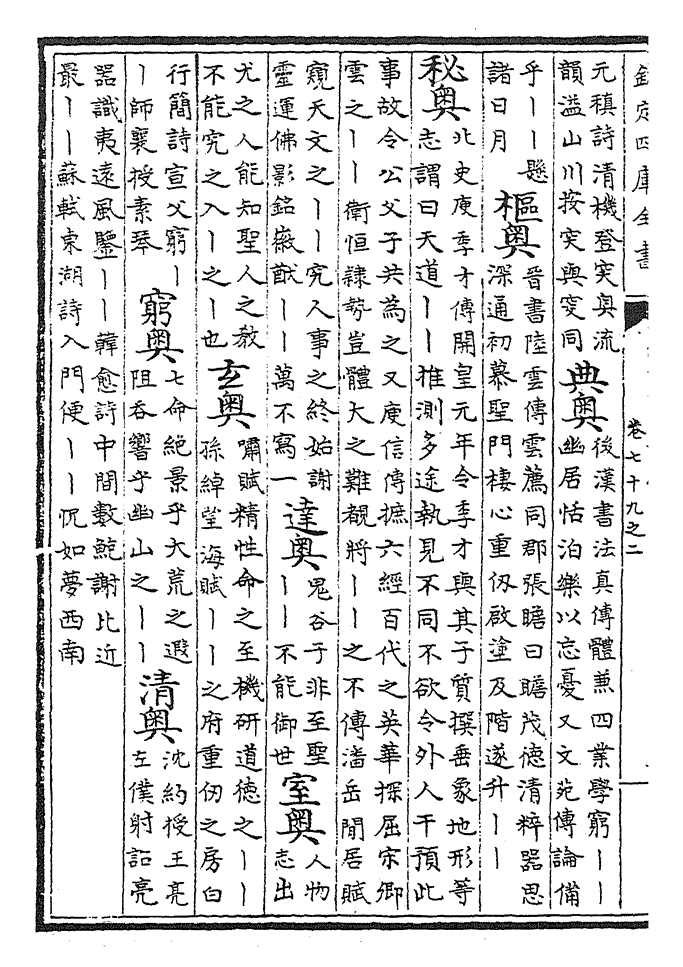 欽定四庫全書
卷七十九之二
元稹詩清機登穾奥流
韻溢山川按穾與窔同
典奥
後漢書法真傳體兼四業學窮丨丨
幽居恬泊樂以忘憂又文苑傳論備
乎丨丨懸
諸日月
樞奥
晉書陸雲傳雲薦同郡張瞻曰瞻茂德清粹器思
深通初慕聖門棲心重仭啟塗及階遂升丨丨
秘奥
北史庾季才傳開皇元年令季才與其子質撰垂象地形等
志謂曰天道丨丨推測多途執見不同不欲令外人干預此
事故令公父子共為之又庾信傳摭六經百代之英華探屈宋卿
雲之丨丨衛恒隸勢豈體大之難覩將丨丨之不傳潘岳閒居賦
窺天文之丨丨究人事之終始謝
靈運佛影銘厥猷丨丨萬不寫一
達奥
鬼谷子非至聖
丨丨不能御世
室奥
人物
志出
尤之人能知聖人之敎
不能究之入丨之丨也
玄奥
嘯賦精性命之至機研道德之丨丨
孫綽望海賦丨丨之府重仭之房白
行簡詩宣父窮丨
丨師襄授素琴
窮奥
七命絶景乎大荒之遐
阻吞響乎幽山之丨丨
清奥
沈約授王亮
左僕射詔亮
器識夷遠風鑒丨丨韓愈詩中間數鮑謝比近
最丨丨蘇軾東湖詩入門便丨丨怳如夢西南